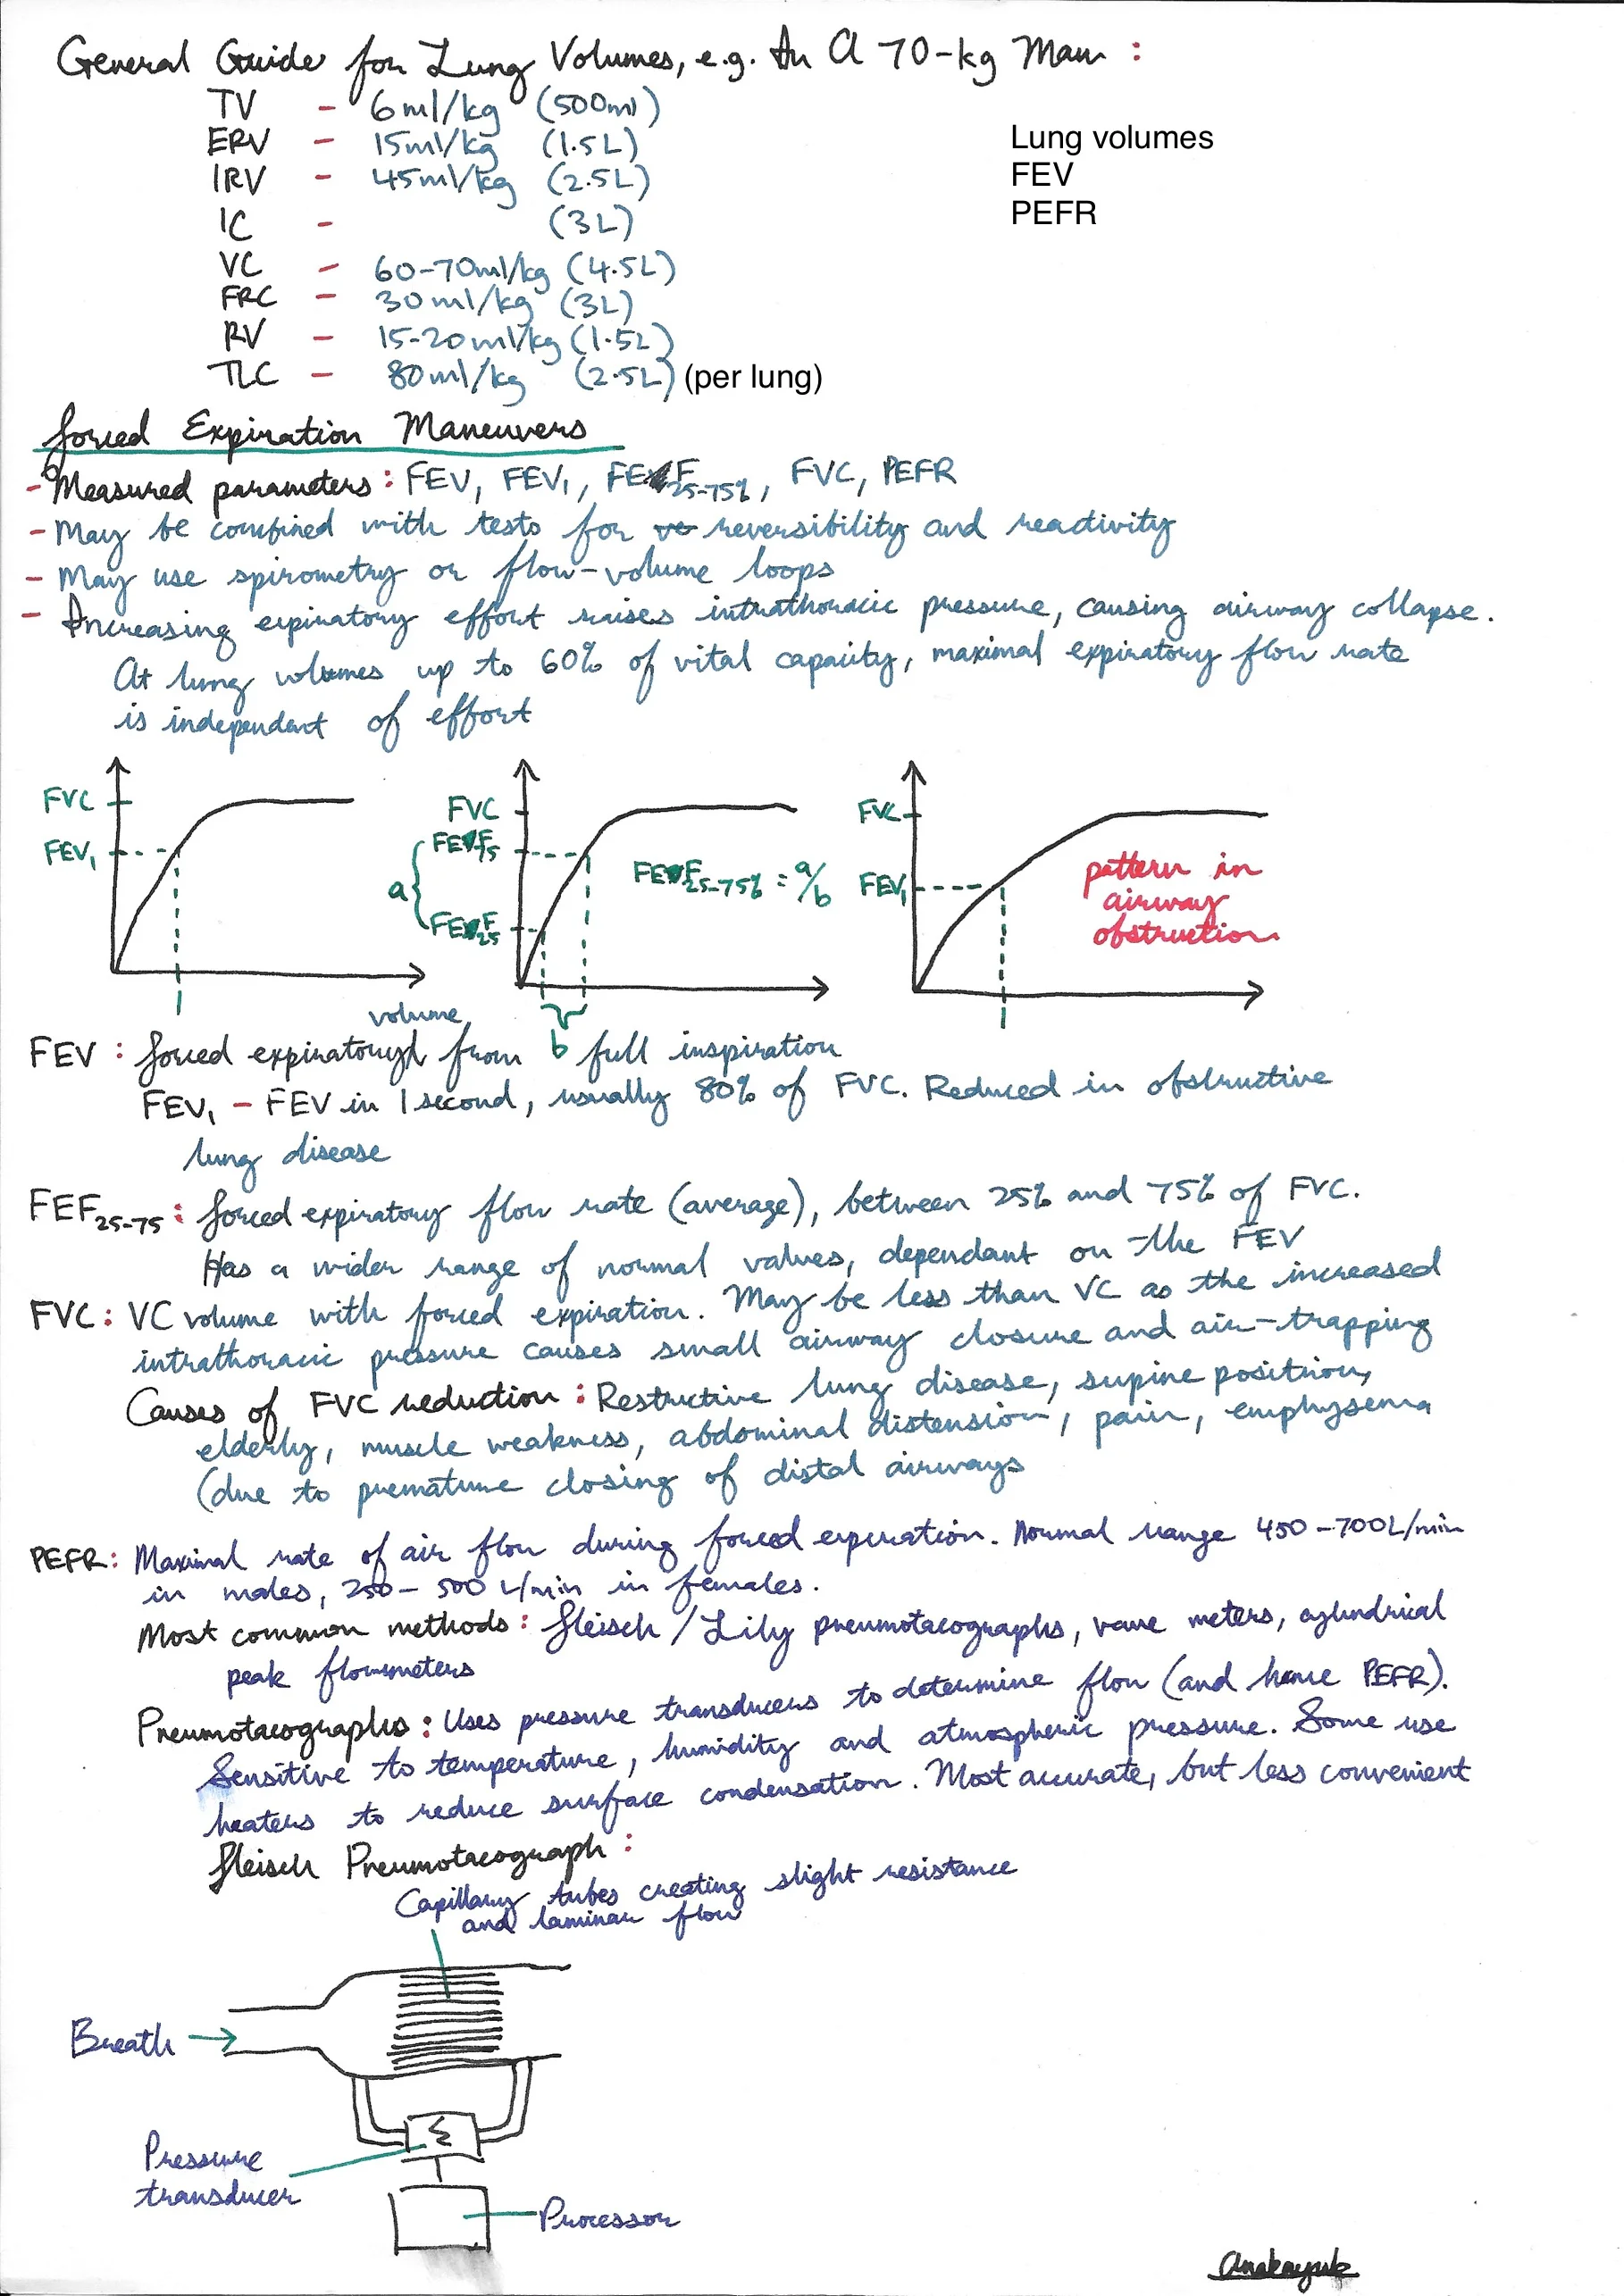 General Guide for Lung Volumes, e.g. In A 70-kg Man :
TV - 6ml/kg (500ml)
ERV - 15ml/kg (1.5L)
IRV - 45ml/kg (2.5L)
IC - (3L)
VC - 60-70ml/kg (4.5L)
FRC - 30ml/kg (3L)
RV - 15-20ml/kg (1.5L)
TLC - 80ml/kg (2.5L) (per lung)
Lung volumes
FEV
PEFR
Forced Expiration Maneuvers
- Measured parameters : FEV, FEV1, FEF25-75%, FVC, PEFR
- May be combined with tests for reversibility and reactivity
- May use spirometry or flow-volume loops
- Increasing expiratory effort raises intrathoracic pressure, causing airway collapse.
At lung volumes up to 60% of vital capacity, maximal expiratory flow rate
is independent of effort
FVC
FEV1
1
FVC
FEF75
a
FEF25
FEF25-75% = a/b
b
FVC
FEV1
pattern in
airway
obstruction
1
volume
FEV : forced expiratory from full inspiration
FEV1 - FEV in 1 second, usually 80% of FVC. Reduced in obstructive
lung disease
FEF25-75 : forced expiratory flow rate (average), between 25% and 75% of FVC.
Has a wider range of normal values, dependant on the FEV
FVC : VC volume with forced expiration. May be less than VC as the increased
intrathoracic pressure causes small airway closure and air-trapping
Causes of FVC reduction : Restructive lung disease, supine position,
elderly, muscle weakness, abdominal distension, pain, emphysema
(due to premature closing of distal airways
PEFR : Maximal rate of air flow during forced expiration. Normal range 450-700L/min
in males, 250-500 L/min in females.
Most common methods : Fleisch / Lily pneumotacographs, vane meters, cylindrical
peak flowmeters
Pneumotacographs : Uses pressure transducers to determine flow (and hence PEFR).
Sensitive to temperature, humidity and atmospheric pressure. Some use
heaters to reduce surface condensation. Most accurate, but less convenient
Fleisch Pneumotacograph :
Capillary tubes creating slight resistance
and laminar flow
Breath
Pressure
transducer
Processor